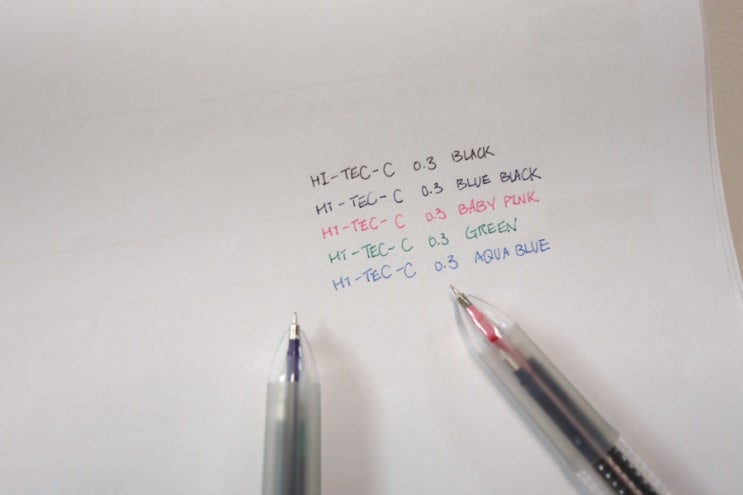 HI-TEC-C 0.3 BLACK
HI-TEC-C 0.3 BLUE BLACK
HI-TEC-C 0.3 BABY PINK
HI-TEC-C 0.3 GREEN
HI-TEC-C 0.3 AQUA BLUE